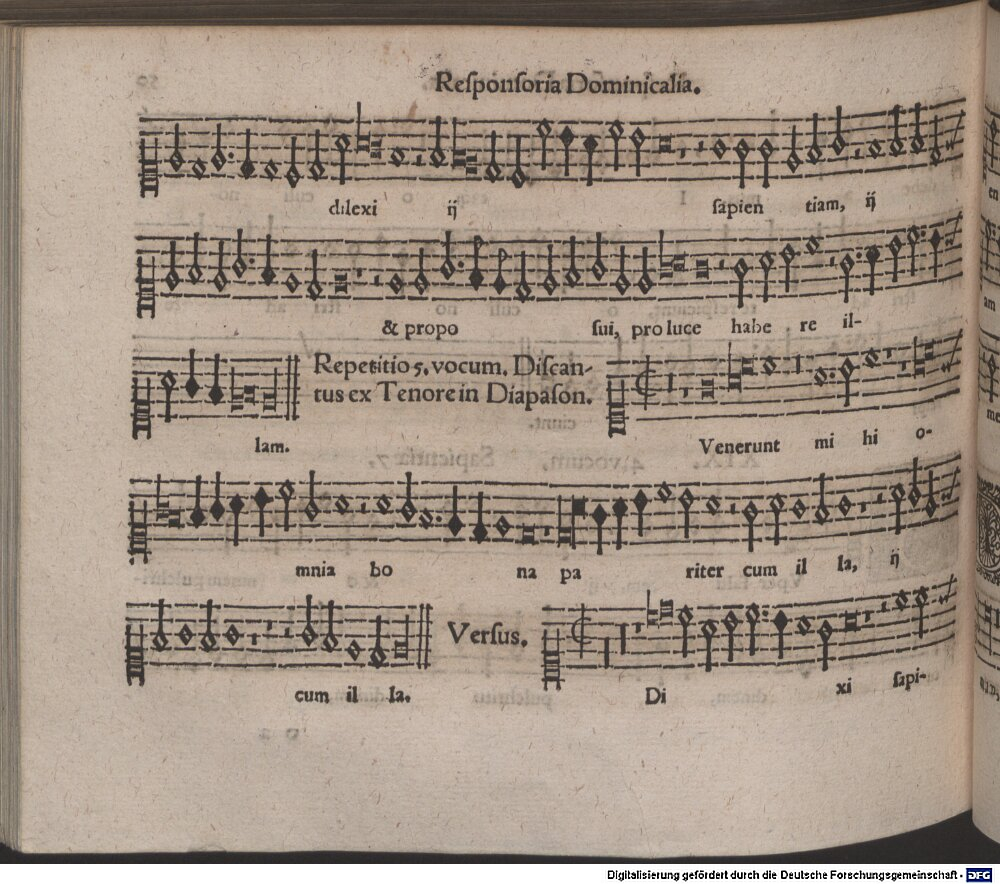 Reſponſoria Dominicalia.
dilexi ij ſapien tiam, ij
& propo ſui, pro luce habe re il-
Repetitio 5. vocum. Diſcan-
tus ex Tenore in Diapaſon.
lam. Venerunt mi hi o-
mnia bo na pa riter cum il la, ij
Verſus.
cum il la. Di xi ſapi-
Digitalisierung gefördert durch die Deutsche Forschungsgemeinschaft - DFG